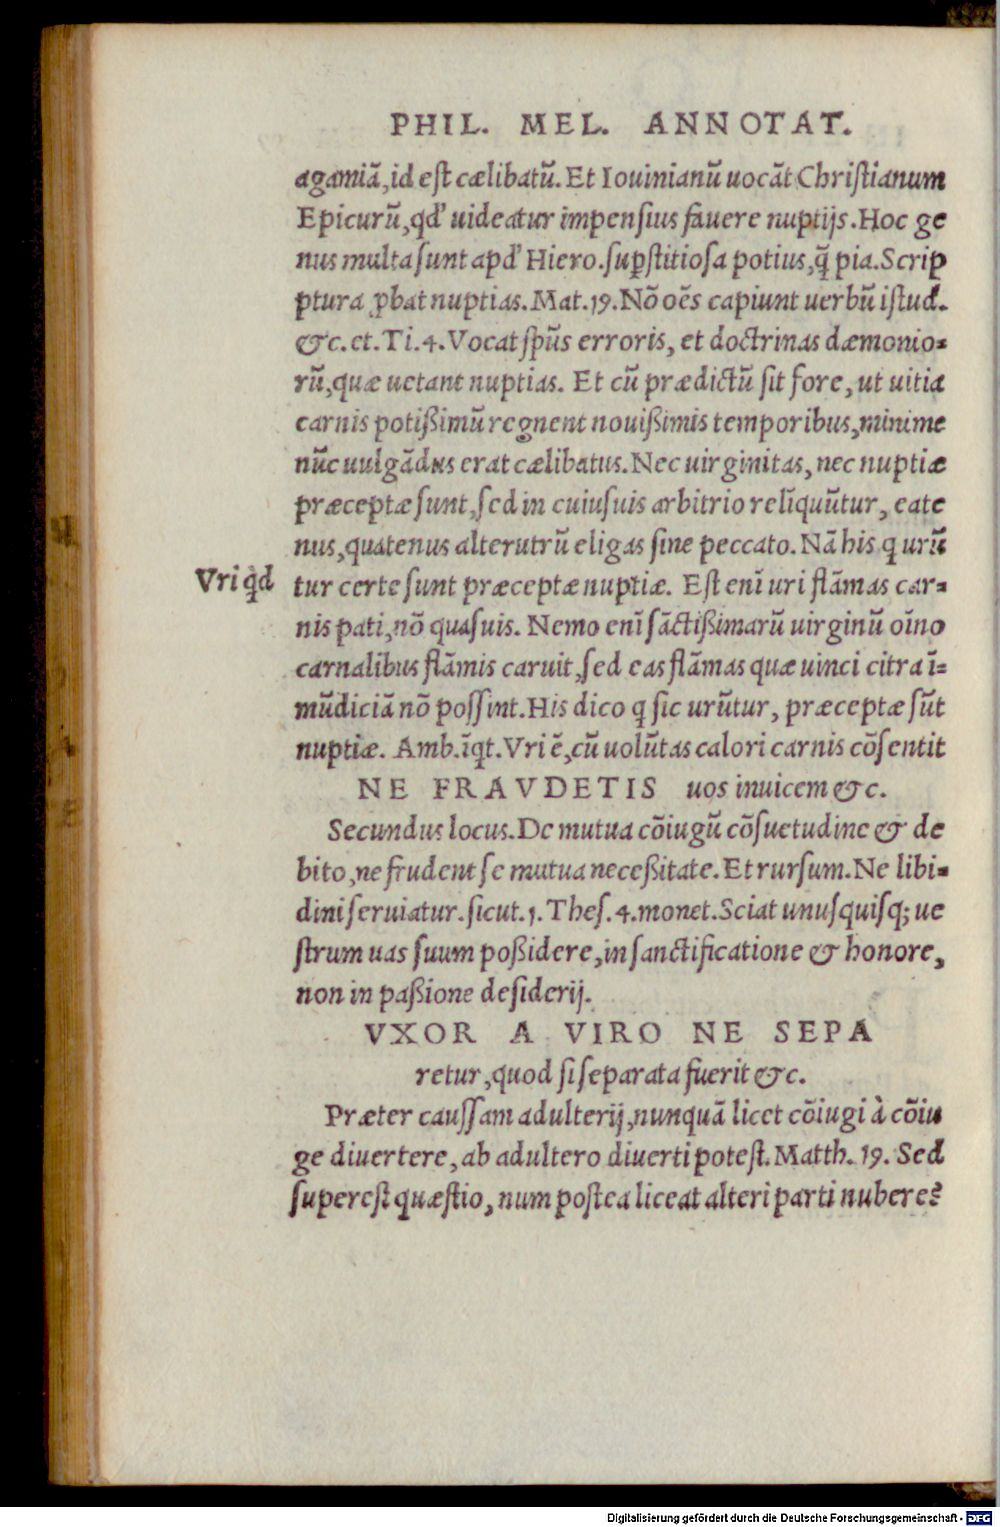 PHIL. MEL. ANNOTAT.
agamiā, id est cælibatū. Et Iouinianū uocāt Christianum
Epicurū, qđ uideatur impensius fauere nuptijs. Hoc ge
nus multa sunt apđ Hiero. suꝑstitiosa potius, q̄ pia. Scrip
ptura ꝓbat nuptias. Mat. 19. Nō oēs capiunt uerbū istud.
&c. et. Ti. 4. Vocat spūs erroris, et doctrinas dæmonio-
rū, quæ uetant nuptias. Et cū prædictū sit fore, ut uitia
carnis potißimū regnent nouißimis temporibus, minime
nūc uulgādus erat cælibatus. Nec uirginitas, nec nuptiæ
præceptæ sunt, sed in cuiusuis arbitrio relīquūtur, eate
nus, quatenus alterutrū eligas sine peccato. Nā his q urū
Vri qd
tur certe sunt præceptæ nuptiæ. Est enī uri flāmas car-
nis pati, nō quasuis. Nemo enī sāctißimarū uirginū oīno
carnalibus flāmis caruit, sed eas flāmas quæ uinci citra ī-
mūdiciā nō possint. His dico q sic urūtur, præceptæ sūt
nuptiæ. Amb. īqt. Vri ē, cū uolūtas calori carnis cōsentit
NE FRAVDETIS uos inuicem &c.
Secundus locus. De mutua cōiugū cōsuetudine & de
bito, ne frudent se mutua neceßitate. Et rursum. Ne libi-
dini seruiatur. sicut. 1. Thes. 4. monet. Sciat unusquisq; ue
strum uas suum poßidere, in sanctificatione & honore,
non in paßione desiderij.
VXOR A VIRO NE SEPA
retur, quod si separata fuerit &c.
Præter caussam adulterij, nunquā licet cōiugi à cōiu
ge diuertere, ab adultero diuerti potest. Matth. 19. Sed
superest quæstio, num postea liceat alteri parti nubere?
Digitalisierung gefördert durch die Deutsche Forschungsgemeinschaft - DFG